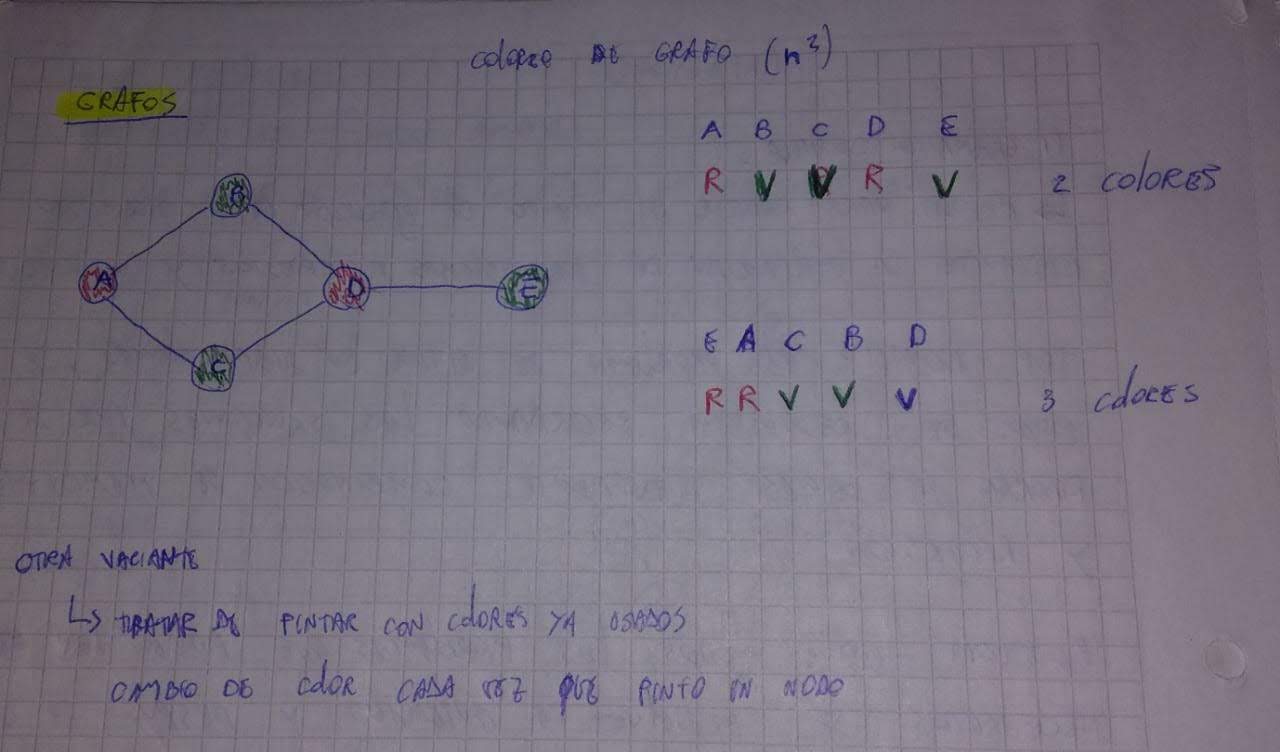 COLOREO DE GRAFO (n²)
GRAFOS
A B C D E
R V V R V 2 COLORES
B
A
D
E
C
E A C B D
R R V V V 3 COLORES
OTRA VARIANTE
↳ TRATAR DE PINTAR CON COLORES YA USADOS
CAMBIO DE COLOR CADA VEZ QUE PINTO UN NODO